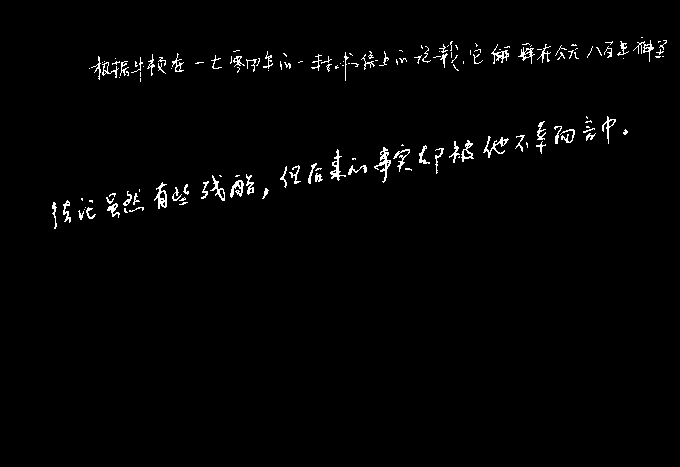 根据牛顿在一七零四年的一封书信上的记载,它解释在公元八百年神圣
结论虽然有些残酷,但后来的事实却被他不幸而言中。